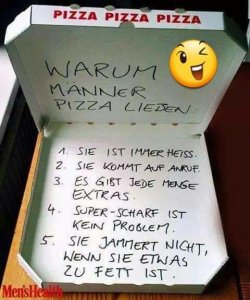 PIZZA PIZZA PIZZA
WARUM
MÄNNER
PIZZA LIEBEN.
1. SIE IST IMMER HEISS.
2. SIE KOMMT AUF ANRUF.
3. ES GIBT JEDE MENGE
EXTRAS.
4. SUPER-SCHARF IST
KEIN PROBLEM.
5. SIE JAMMERT NICHT,
WENN SIE ETWAS
ZU FETT IST.
Men'sHealth